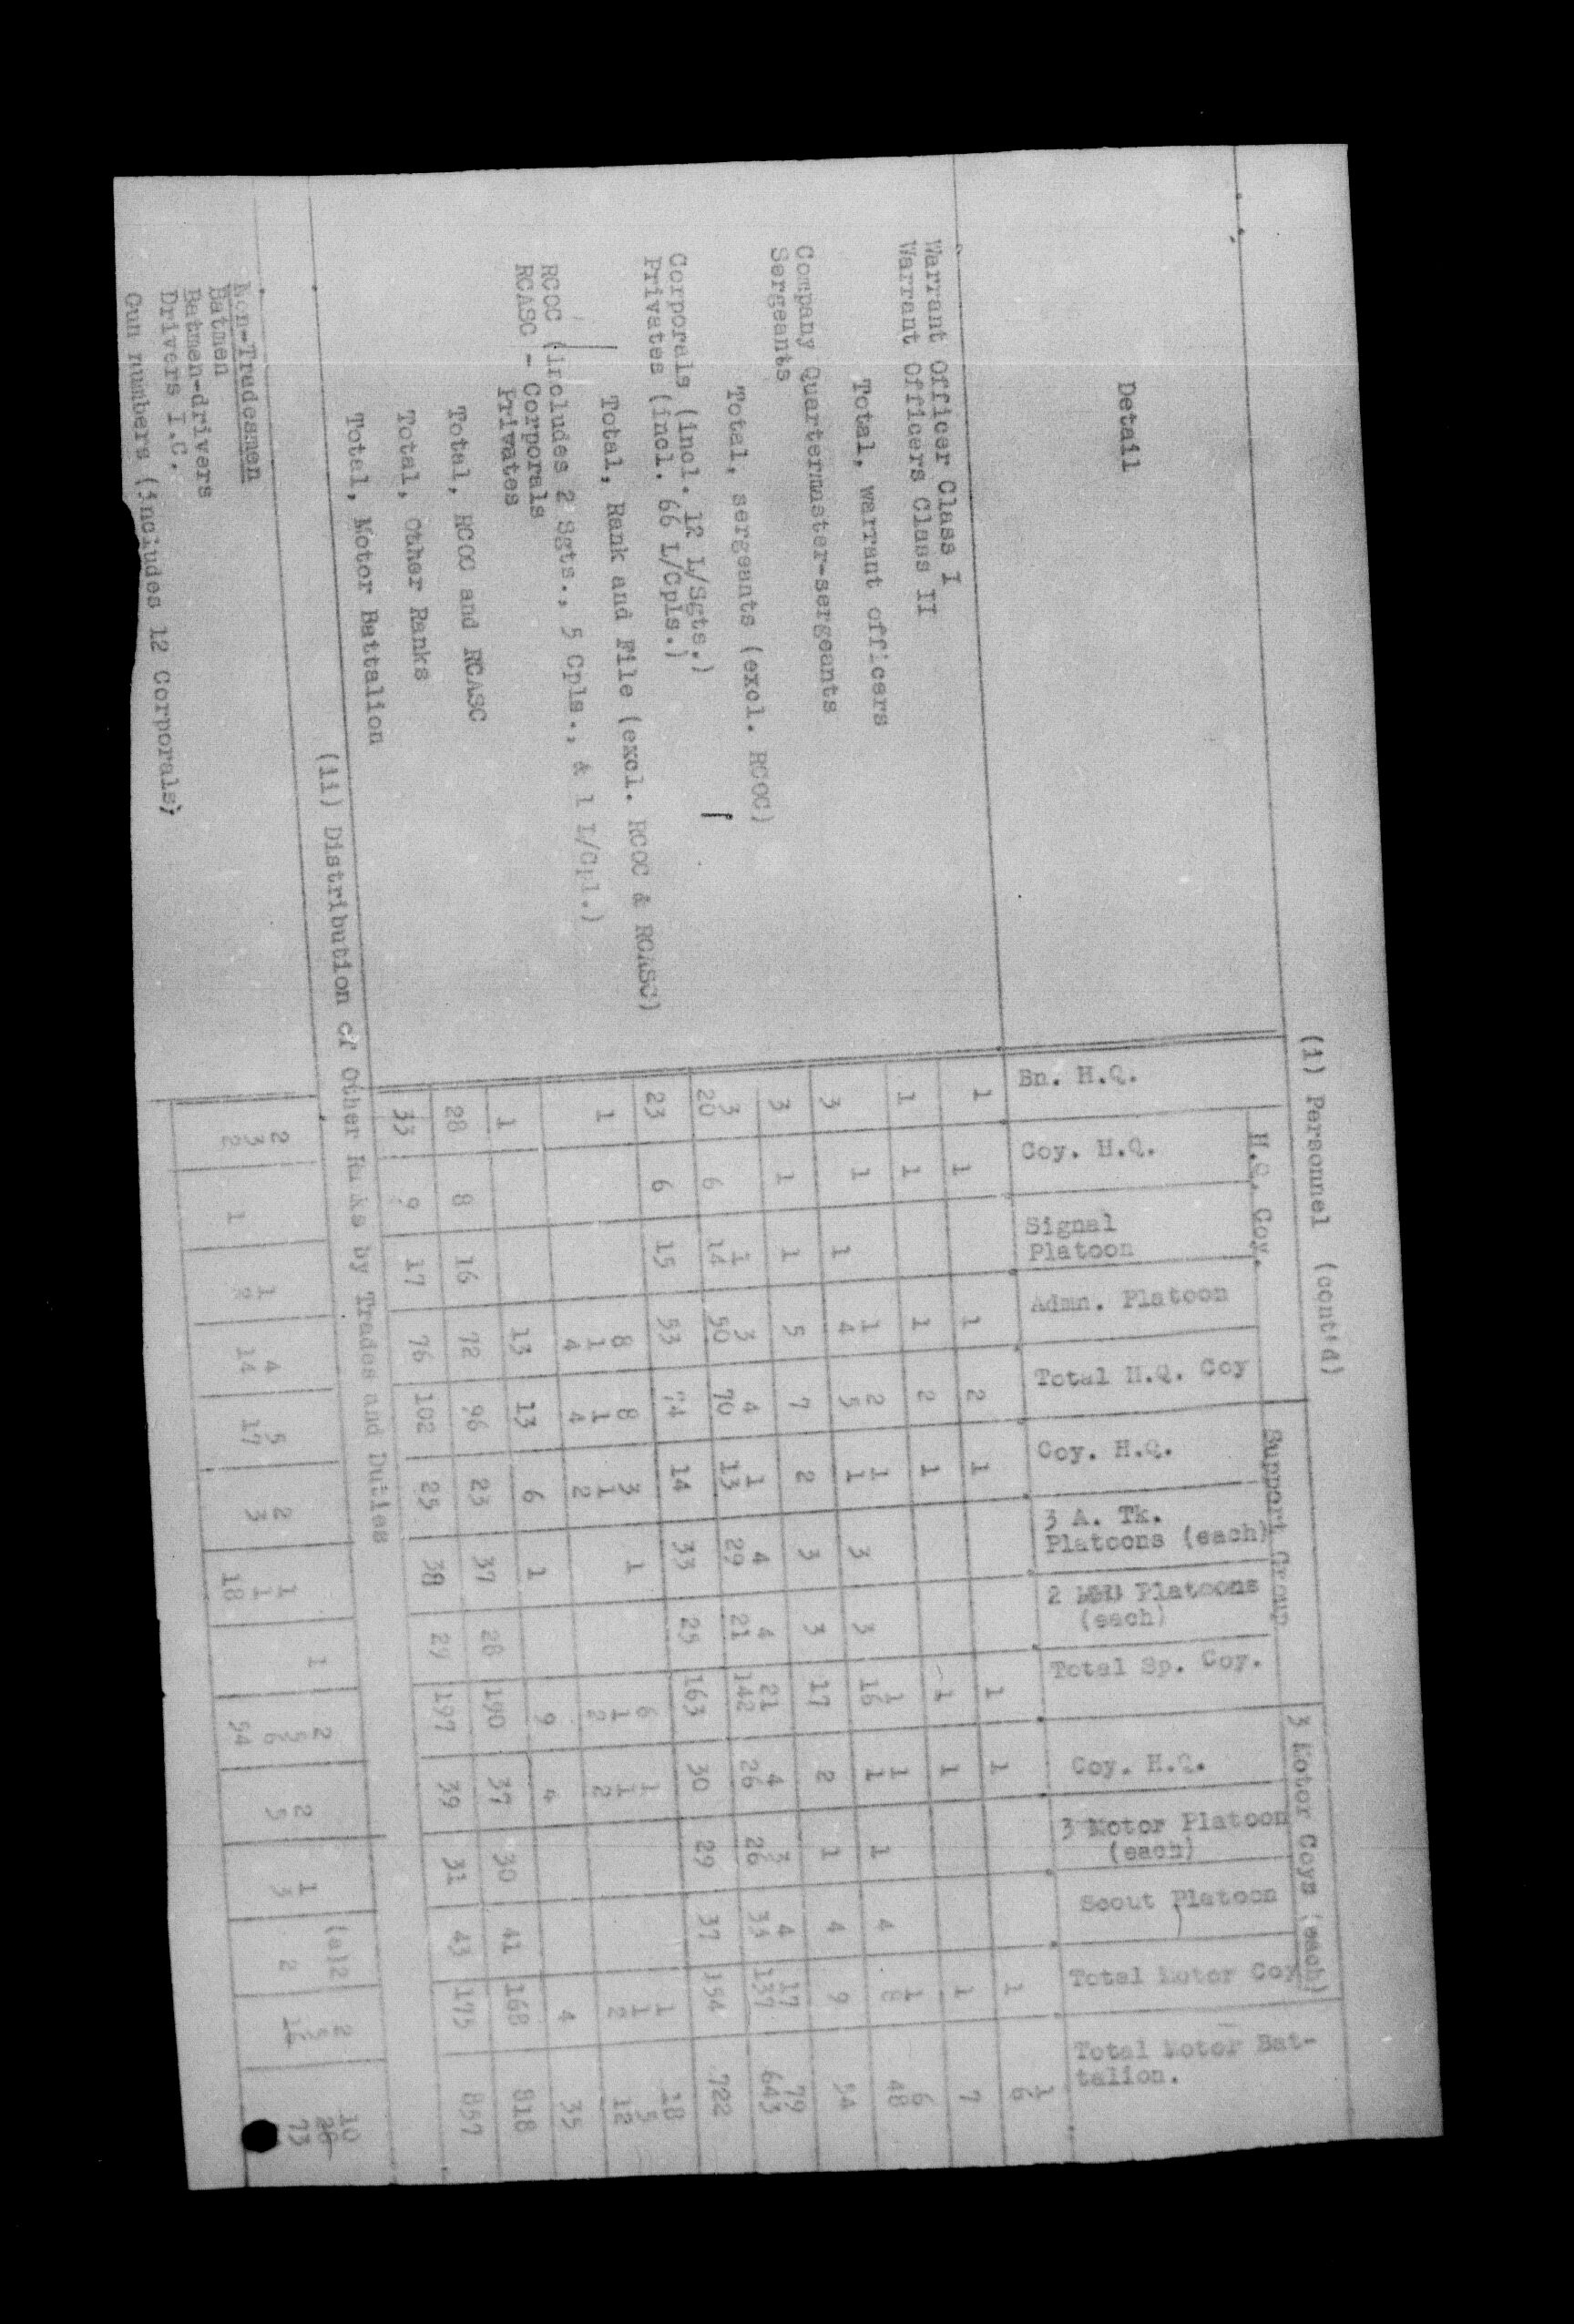 (i) Personnel (cont'd)
H.Q. Coy. Support Group 3 Motor Coys (each)
Detail Bn. H.Q. Coy. H.Q. Signal Platoon Admn. Platoon Total H.Q. Coy Coy. H.Q. 3 A. Tk. Platoons (each) 2 Platoons (each) Total Sp. Coy. Coy. H.Q. 3 Motor Platoon (each) Scout Platoon Total Motor Coy Total Motor Bat-talion.
Warrant Officer Class I 1 1
Warrant Officers Class II 1 1 2 1 1 1 1 6
Total, warrant officers 1 1 1 2 1 1 1 1 7
Company Quartermaster-sergeants 1 1 2 1 1 1 1 6
Sergeants 3 1 4 5 1 3 3 16 1 1 4 8 48
Total, sergeants (excl. RCOC) 3 1 1 5 7 2 3 3 17 2 1 4 9 54
Corporals (incl. 12 L/Sgts.) 3 1 3 4 1 4 4 21 4 3 4 17 79
Privates (incl. 66 L/Cpls.) 20 6 14 50 70 13 29 21 142 26 26 33 137 643
Total, Rank and File (excl. RCOC & RCASC) 23 6 15 53 74 14 33 25 163 30 29 37 154 722
RCOC (includes 2 Sgts., 5 Cpls., & 1 L/Cpl.) 1 8 8 3 1 6 1 1 18
RCASC - Corporals 1 1 1 1 1 1 5
Privates 4 4 2 2 2 2 12
Total, RCOC and RCASC 1 13 13 6 1 9 4 4 35
Total, Other Ranks 28 8 16 72 96 23 37 28 190 37 30 41 168 818
Total, Motor Battalion 33 9 17 76 102 25 38 29 197 39 31 43 175 857
(ii) Distribution of Other Ranks by Trades and Duties
Non-Tradesmen
Batmen 2 2 2 2 10
Batmen-drivers 3 1 4 5 1 1 5 1 (a)2 5 28
Drivers I.C. 2 1 2 14 17 3 1 6 5 3 2 16 73
Gun numbers (includes 12 Corporals) 18 54